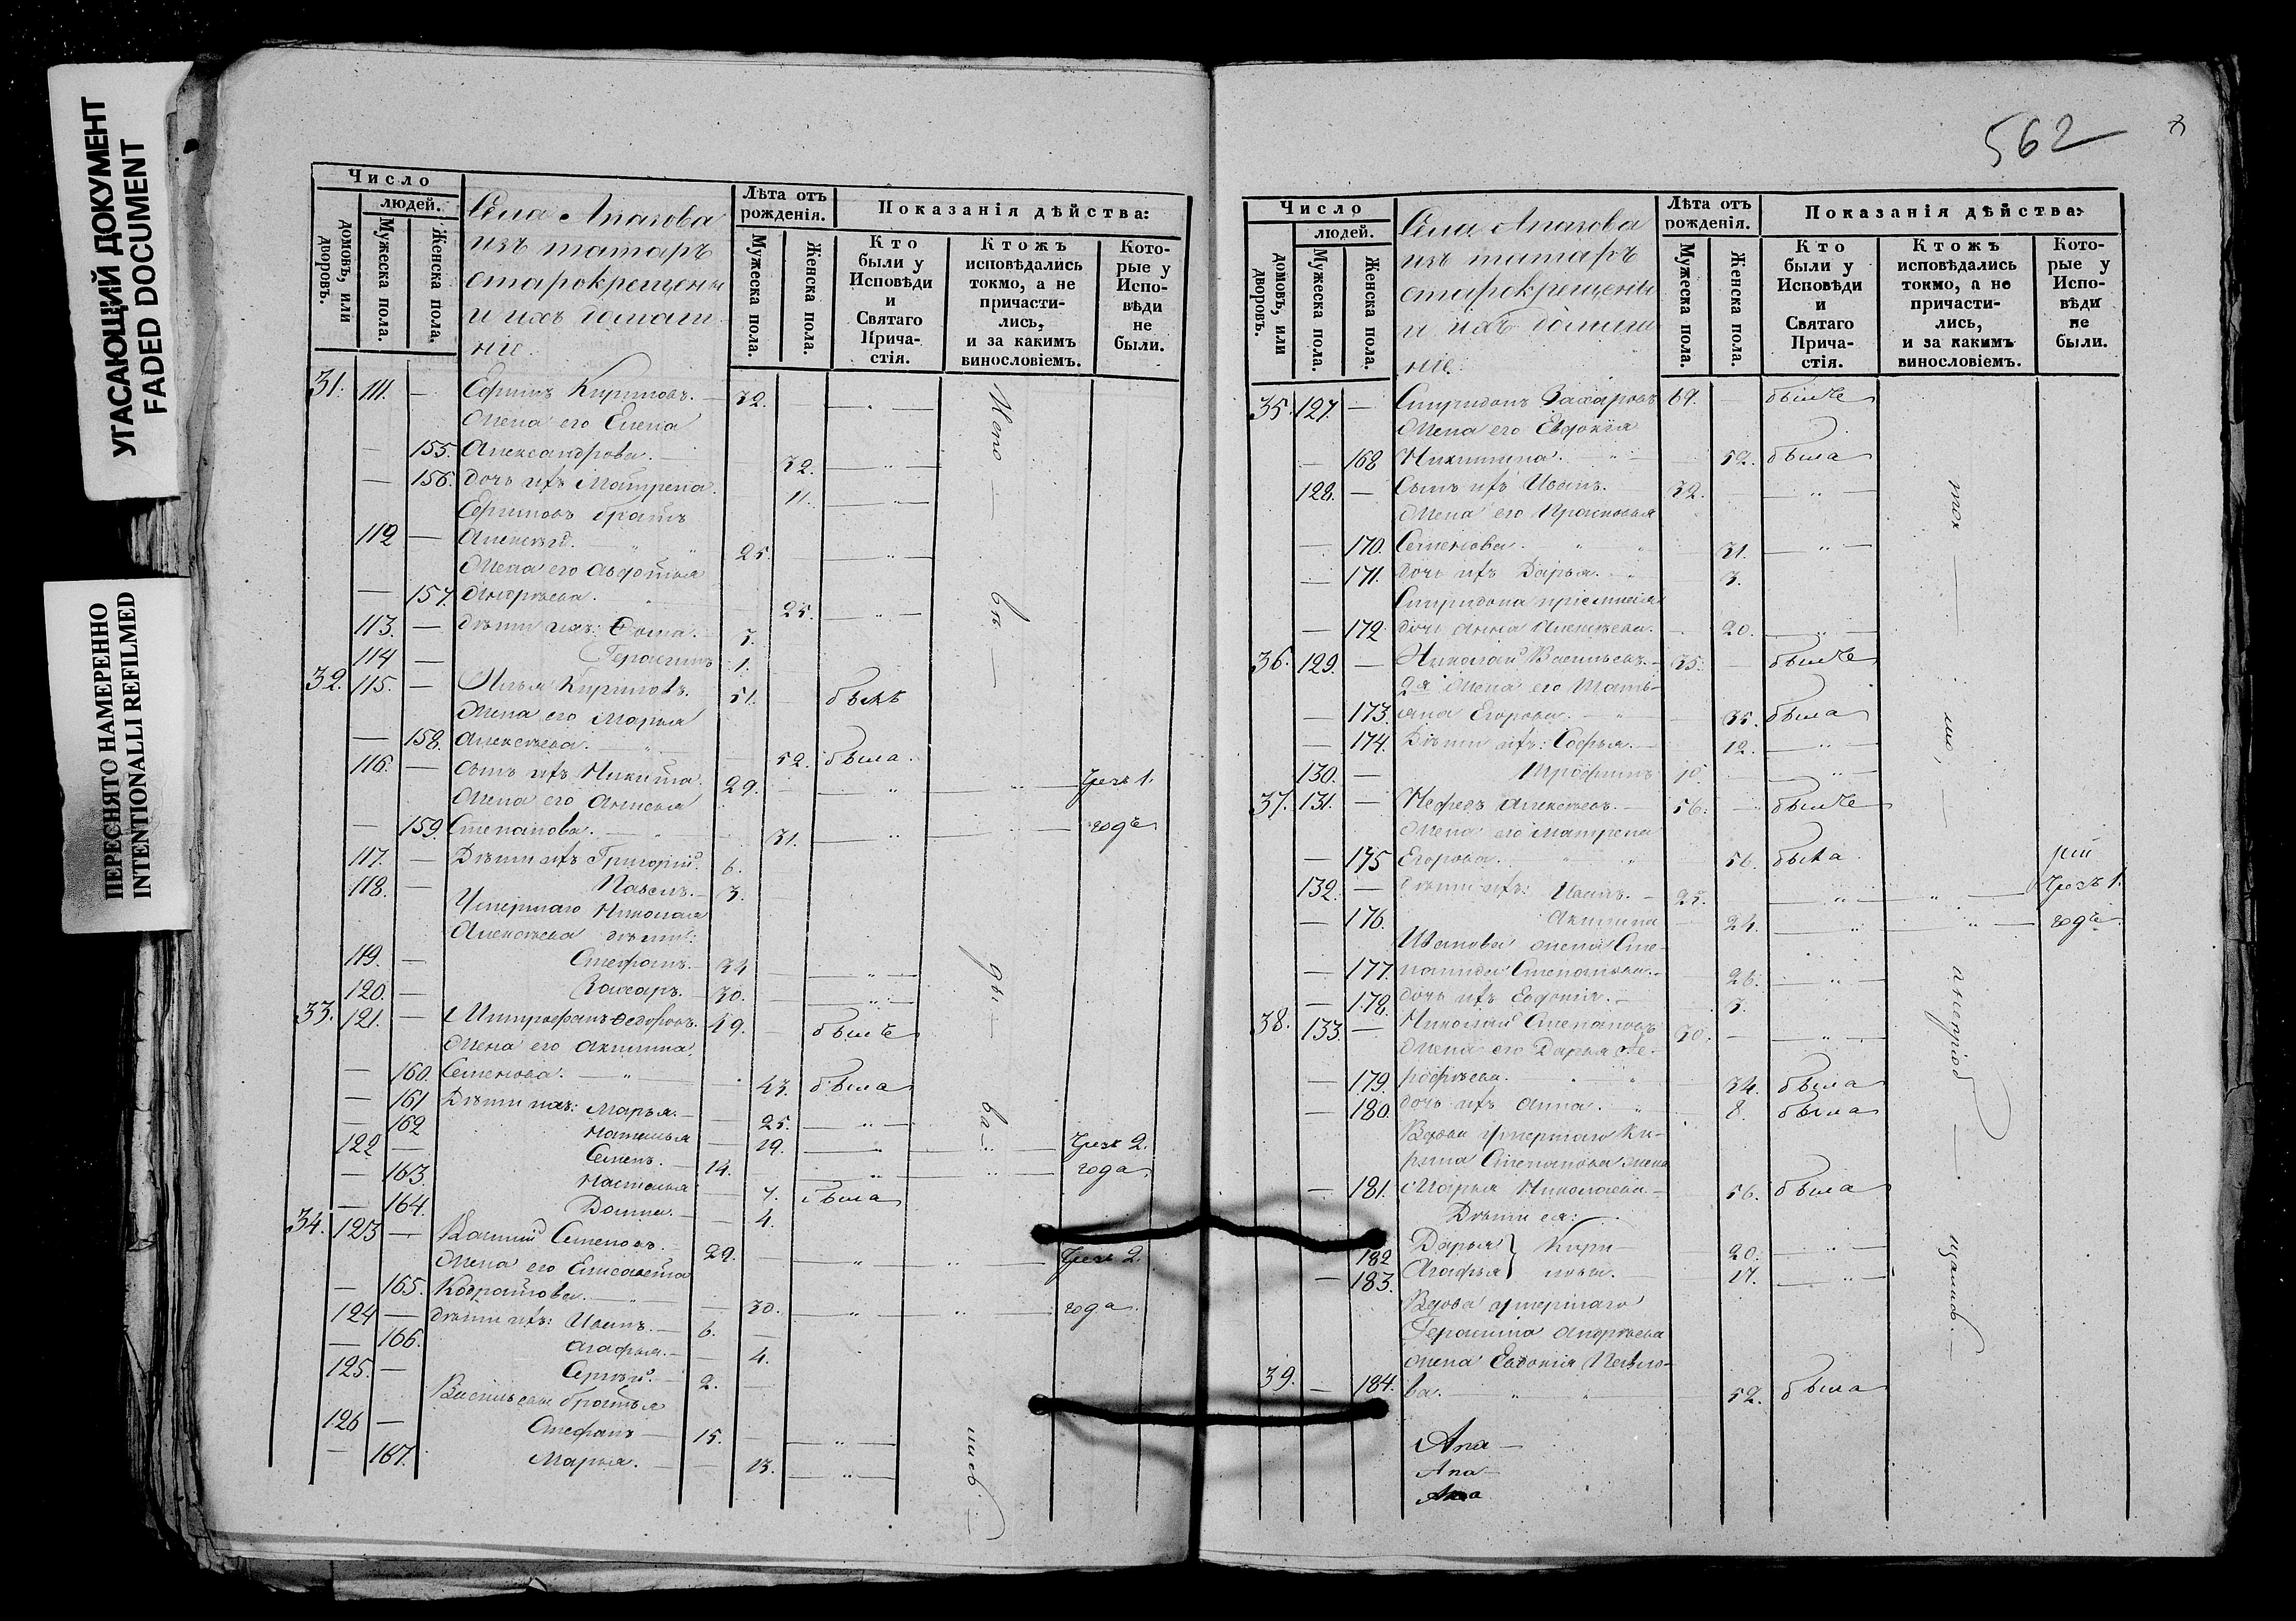 УГАСАЮЩИЙ ДОКУМЕНТ
FADED DOCUMENT
ПЕРЕСНЯТО НАМЕРЕННО
INTENTIONALLI REFILMED
Число
людей.
домовъ, или дворовъ.
Мужеска пола.
Женска пола.
Села Апазова
изъ татаръ
старокрещены
и ихъ домаш
ніе.
Лѣта отъ рожденія.
Мужеска пола.
Женска пола.
Показанія дѣйства:
Кто были у Исповѣди и Святаго Прича-стія.
Ктожъ исповѣдались токмо, а не причасти-лись, и за какимъ винословіемъ.
Кото-рые у Испо-вѣди не были.
31. 111. — Ефимъ Кириловъ. — 32.
Жена его Елена
— 155. Александрова. — 32.
— 156. дочь ихъ Матрена. 11.
Ефимовъ братъ
112 — Алексѣй. 25.
Жена его Авдотья
— 157. Андреева. 25.
113. — дѣти ихъ: Фома.
114 — Герасимъ 1.
32. 115. — Илья Кириловъ. 51. — былъ
Жена его Марья
— 158. Алексѣева. — 52. была.
116. — сынъ ихъ Никита 29. Чрезъ 1.
Жена его Анисья
— 159 Степанова. — 31. годъ
117. — Дѣти ихъ Григорій. 6.
118. — Павелъ. — 3.
Умершаго Николая
Алексѣева дѣти:
119. — Стефанъ. — 34
120. — Захаръ. — 30.
33. 121. — Митрофанъ Федоровъ. 49. — былъ
Жена его Акилина
— 160. Семенова. — 43. была
— 161 Дѣти ихъ: Марья. — 25.
— 162 Наталья — 19. Чрезъ 2.
122 — Семенъ. — 14. года
— 163. Настасья — 7. была
— 164. Домна. — 4.
34. 123 — Василий Семеновъ. 29. Чрезъ 2.
Жена его Елисавета
— 165. Кодратова. — 30. года.
124 — дѣти ихъ: Иванъ. — 6.
— 166. Агафья. — 4.
125. — Сергѣй. — 2.
Васильевы братья
126 — Стефанъ — 15.
— 167. Марья. — 13.
562
Число
людей.
домовъ, или дворовъ.
Мужеска пола.
Женска пола.
Села Апазова
изъ татаръ
старокрещены
и ихъ домаш
ніе.
Лѣта отъ рожденія.
Мужеска пола.
Женска пола.
Показанія дѣйства:
Кто были у Исповѣди и Святаго Прича-стія.
Ктожъ исповѣдались токмо, а не причасти-лись, и за какимъ винословіемъ.
Кото-рые у Испо-вѣди не были.
35. 127. — Спиридонъ Захаровъ 69. — былъ
Жена его Евдокія
— 168 Никитина. — 52. была
128. — Сынъ ихъ Иванъ. 32.
Жена его Прасковья
— 170. Семенова. 31.
— 171. дочь ихъ Дарья. 3.
Спиридона
— 172. дочь Анна Алексѣева. — 20.
36. 129. — Николай Васильевъ. — 35. — былъ
2я жена его Тать-
— 173. яна Егорова. — 35. была
— 174. Дѣти ихъ: Софья. — 12.
130. — Трофимъ 10.
37. 131. — Нефедъ Алексѣевъ. — 56. — былъ
Жена его Матрена
— 175 Егорова. 56. была
132. — дѣти ихъ: Иванъ. — 25. Чрезъ 1.
— 176. Акилина — 24. годъ
Иванова жена Сте-
— 177. панида Степанова. — 26.
— 178. дочь ихъ Евдокія. — 3.
38. 133. — Николай Степановъ 30.
Жена его Дарья Не-
— 179. рофѣева. 34. была
— 180. дочь ихъ Анна. 8. была
Вдова умершаго Ки-
рила Степанова жена
— 181. Марья Николаева. — 56. была
Дѣти ея:
182 Дарья } Кири- — 20.
— 183. Агафья } лова. — 17.
Вдова умершаго
Герасима Андреева
жена Евдокія
39. — 184. ва. 52. была
Апа—
Апа—
Апа